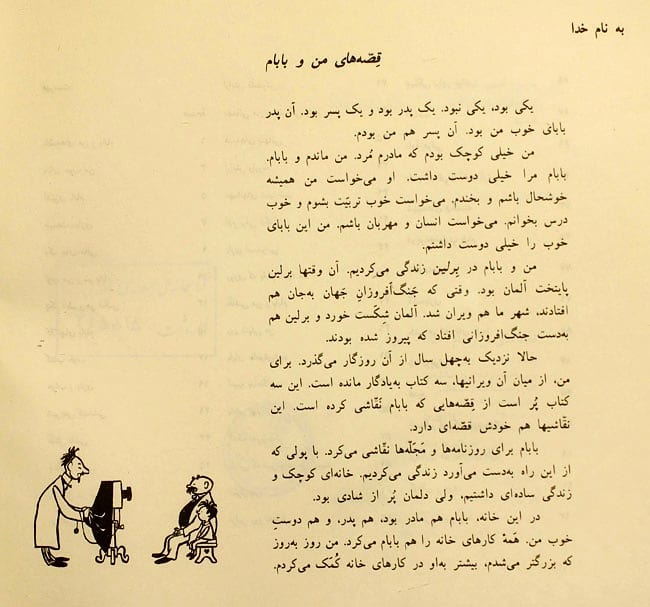 به نام خدا
قِصّه‌های من و بابام
یکی بود، یکی نبود. یک پدر بود و یک پسر بود. آن پدر
بابای خوب من بود. آن پسر هم من بودم.
من خیلی کوچک بودم که مادرم مُرد. من ماندم و بابام.
بابام مرا خیلی دوست داشت. او می‌خواست من همیشه
خوشحال باشم و بخندم. می‌خواست خوب تربیّت بشوم و خوب
درس بخوانم. می‌خواست انسان و مهربان باشم. من این بابای
خوب را خیلی دوست داشتم.
من و بابام در بِرلین زندگی می‌کردیم. آن وقتها برلین
پایتخت آلمان بود. وقتی که جَنگ‌اَفروزانِ جَهان به‌جان هم
افتادند، شهر ما هم ویران شد. آلمان شِکَست خورد و برلین هم
به‌دست جنگ‌افروزانی افتاد که پیروز شده بودند.
حالا نزدیک به‌چهل سال از آن روزگار می‌گذرد. برای
من، از میان آن ویرانیها، سه کتاب به‌یادگار مانده است. این سه
کتاب پُر است از قِصّه‌هایی که بابام نَقّاشی کرده است. این
نقّاشیها هم خودش قصّه‌ای دارد.
بابام برای روزنامه‌ها و مَجَلّه‌ها نقّاشی می‌کرد. با پولی که
از این راه به‌دست می‌آورد زندگی می‌کردیم. خانه‌ای کوچک و
زندگی ساده‌ای داشتیم، ولی دلمان پُر از شادی بود.
در این خانه، بابام هم مادر بود، هم پدر، و هم دوستِ
خوب من. هَمهٔ کارهای خانه را هم بابام می‌کرد. من روز به‌روز
که بزرگتر می‌شدم، بیشتر به‌او در کارهای خانه کُمَک می‌کردم.